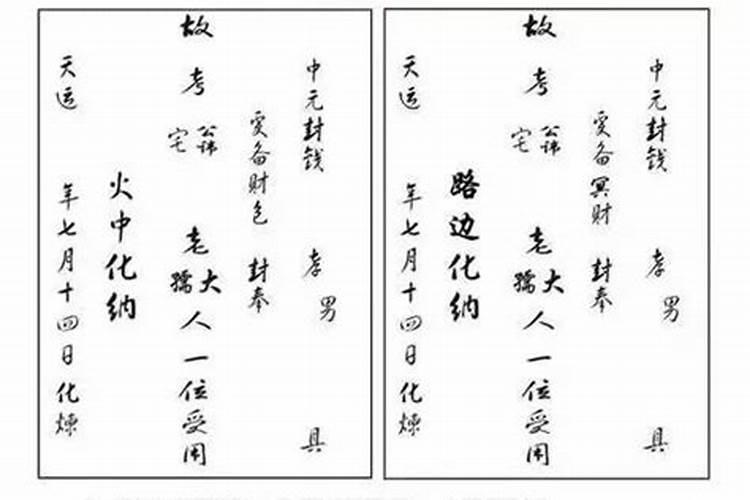 中元封钱 孝男 具
爰备财包 封奉
故考公讳宅 老大孺人一位受用
火中化纳
天运 年七月十四日化煉
中元封钱 孝男 具
爰备冥财 封奉
故考公讳宅 老大孺人一位受用
路边化纳
天运 年七月十四日化煉